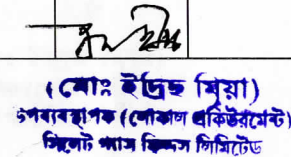 (মোঃ ইদ্রিছ মিয়া)
উপব্যবস্থাপক (লোকাল প্রকিউরমেন্ট)
সিলেট গ্যাস ফিল্ডস লিমিটেড